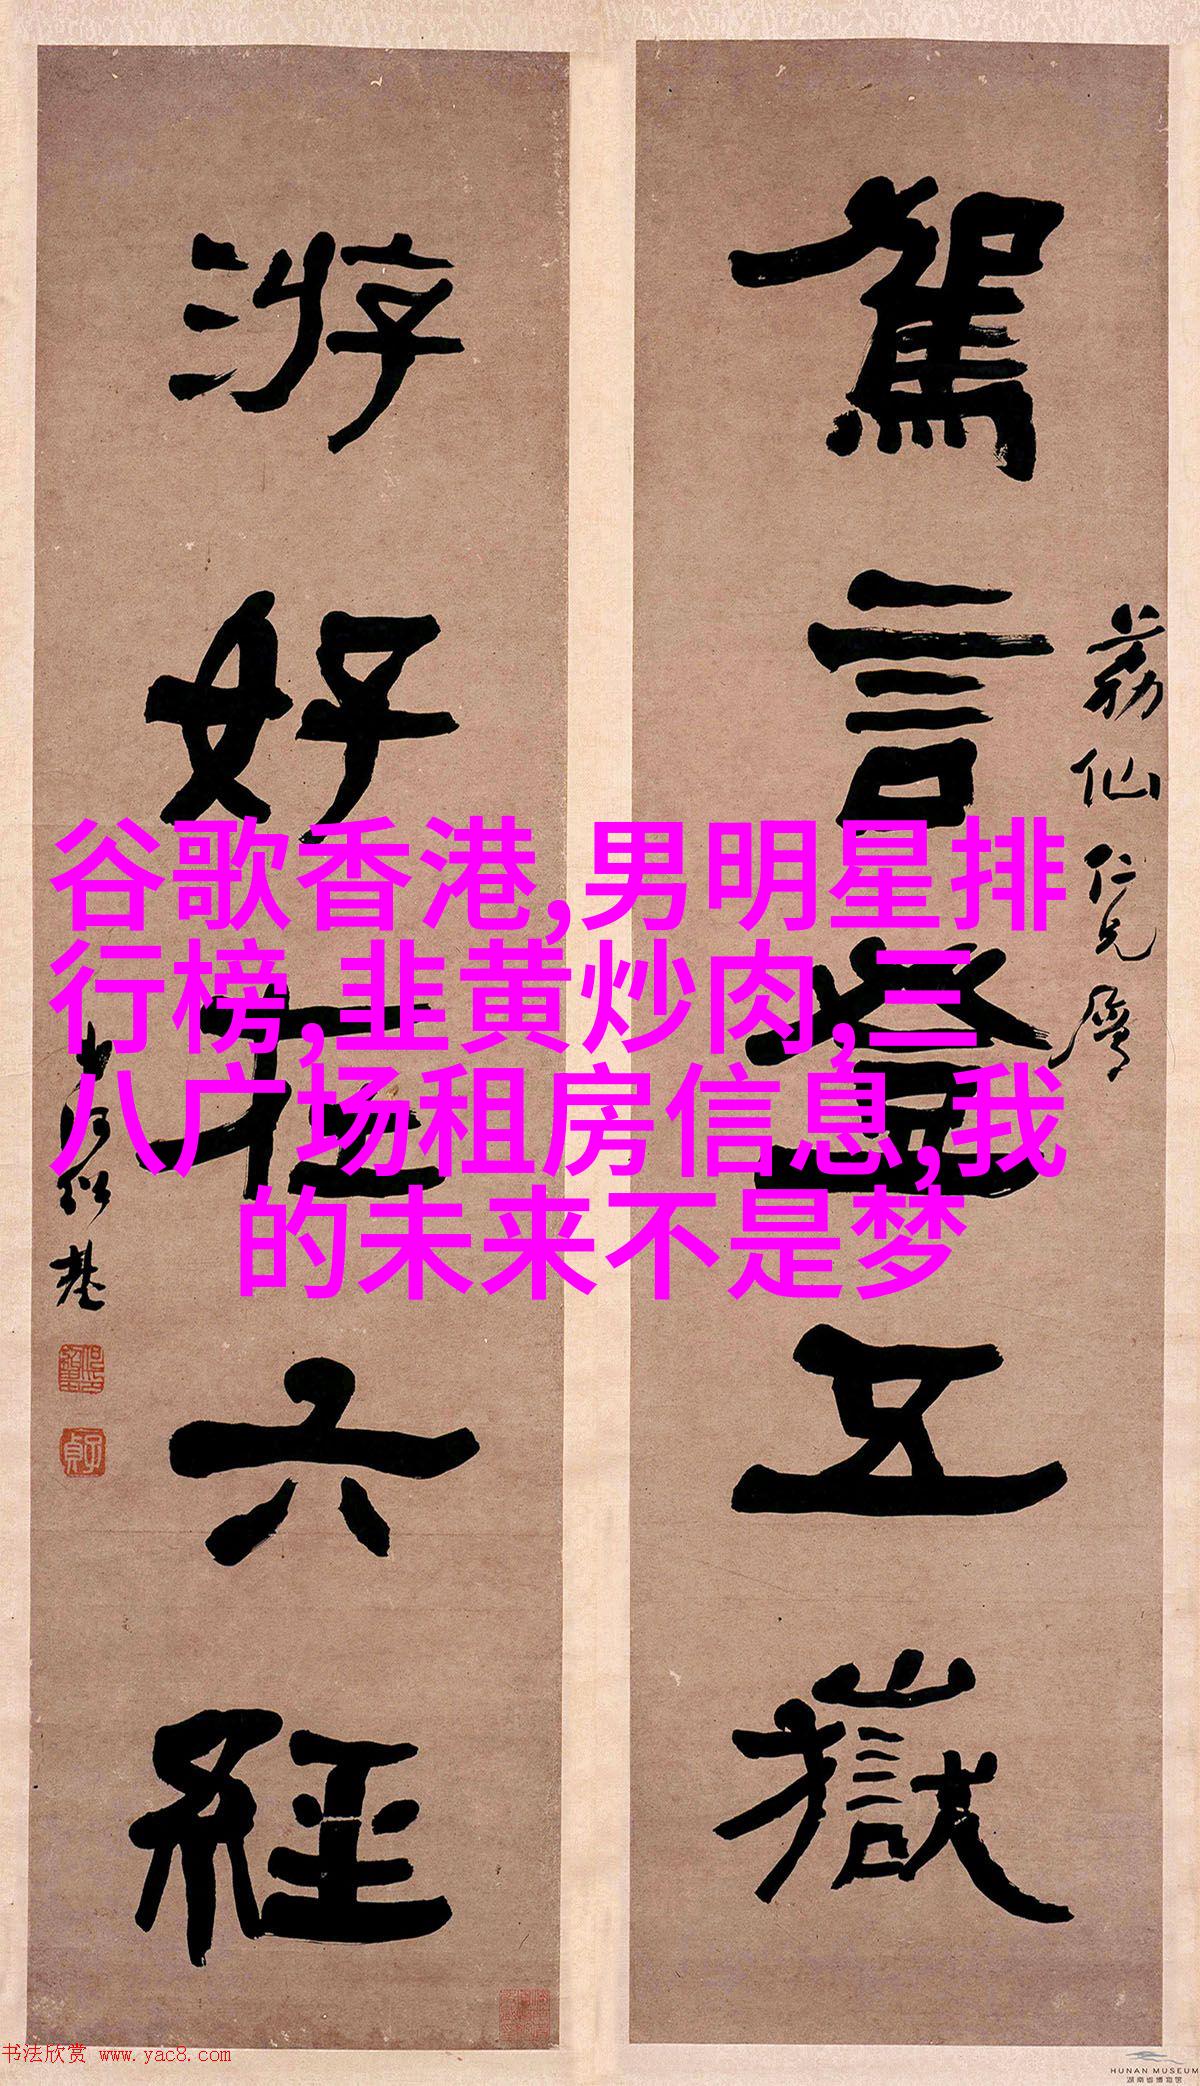 駕言登五嶽
荔仙仁兄屬
游好在六經
子貞
谷歌香港,男明星排
行榜,韭黄炒肉,三
八广场租房信息,我
的未来不是梦
书法欣赏 www.yac8.com
HUNAN MUSEUM
湖南省博物馆